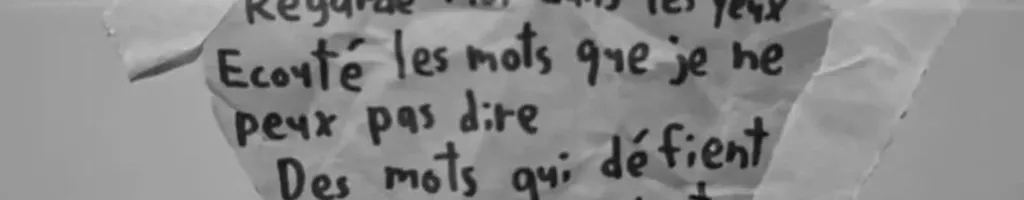 Regarde moi dans les yeux
Ecouté les mots que je ne
peux pas dire
Des mots qui défient